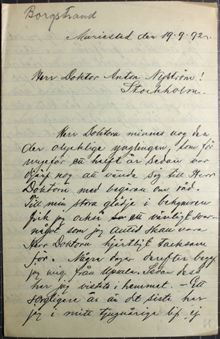 Borgstrand
Mariestad den 19-9-92.
Herr Doktor Anton Nyström!
Stockholm.
Herr Doktorn minnes nog den
der olycklige ynglingen, som för
ungefär ett halft år sedan var
nog att vända sig till Herr
Doktorn med begäran om råd.
Till min stora glädje i bekymren
fick jag också ett vänligt svar
något som jag alltid skall vara
Herr Doktorn hjertligt tacksam
för. Några dagar derefter begaf
jag mig från Upsala. Sedan dess
har jag vistats i hemmet. – Ett
sorgligare år än det sista har
jag i mitt tjuguåriga lif ej